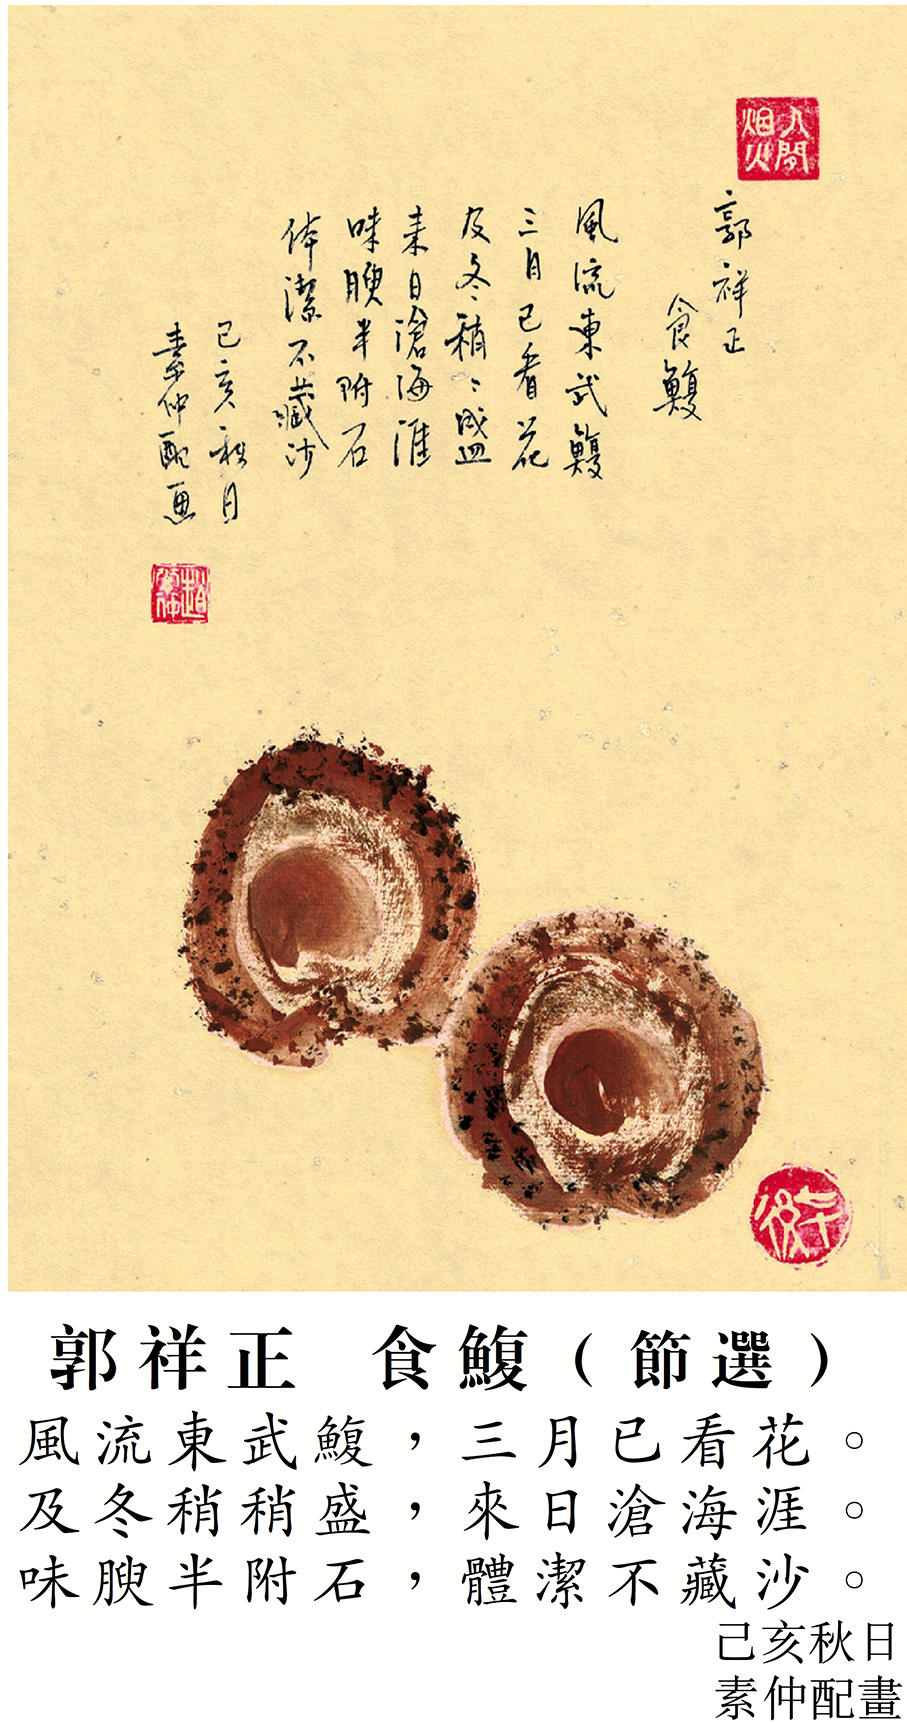 人間
烟火
郭祥正
食鰒
風流東武鰒
三月已看花
及冬稍〻盛
来日滄海涯
味腴半附石
体潔不藏沙
己亥秋日
素仲配画
趙
素仲
郭祥正 食鰒（節選）
風流東武鰒，三月已看花。
及冬稍稍盛，來日滄海涯。
味腴半附石，體潔不藏沙。
己亥秋日
素仲配畫